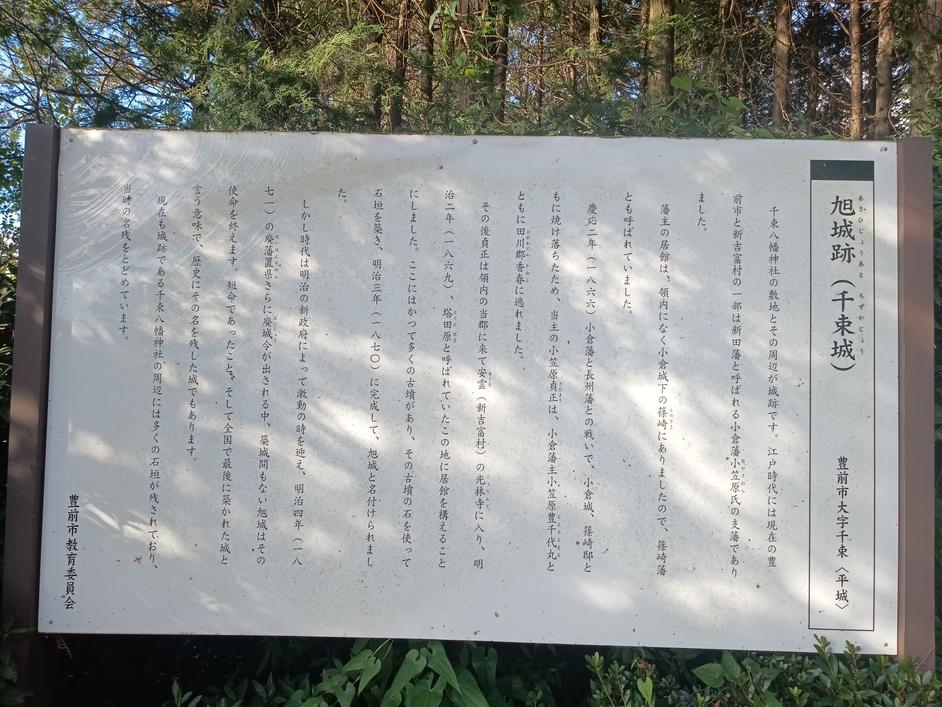 旭城跡（千束城）　豊前市大字千束〈平城〉
あさひじょうあと　ちづかじょう
千束八幡神社の敷地とその周辺が城跡です。江戸時代には現在の豊
前市と新吉富村の一部は新田藩と呼ばれる小倉藩小笠原氏の支藩であり
ました。
藩主の居館は、領内になく小倉城下の篠崎にありましたので、篠崎藩
とも呼ばれていました。
慶応二年（一八六六）小倉藩と長州藩との戦いで、小倉城、篠崎邸と
もに焼け落ちたため、当主の小笠原貞正は、小倉藩主小笠原豊千代丸と
ともに田川郡香春に逃れました。
その後貞正は領内の当郡に来て安雲（新吉富村）の光林寺に入り、明
治二年（一八六九）、塔田原と呼ばれていたこの地に居館を構えること
にしました。ここにはかつて多くの古墳があり、その古墳の石を使って
石垣を築き、明治三年（一八七〇）に完成して、旭城と名付けられまし
た。
しかし時代は明治の新政府によって激動の時を迎え、明治四年（一八
七一）の廃藩置県さらに廃城令が出される中、築城間もない旭城はその
使命を終えます。短命であったこと、そして全国で最後に築かれた城と
言う意味で、歴史にその名を残した城でもあります。
現在も城跡である千束八幡神社の周辺には多くの石垣が残されており、
当時の名残をとどめています。
豊前市教育委員会